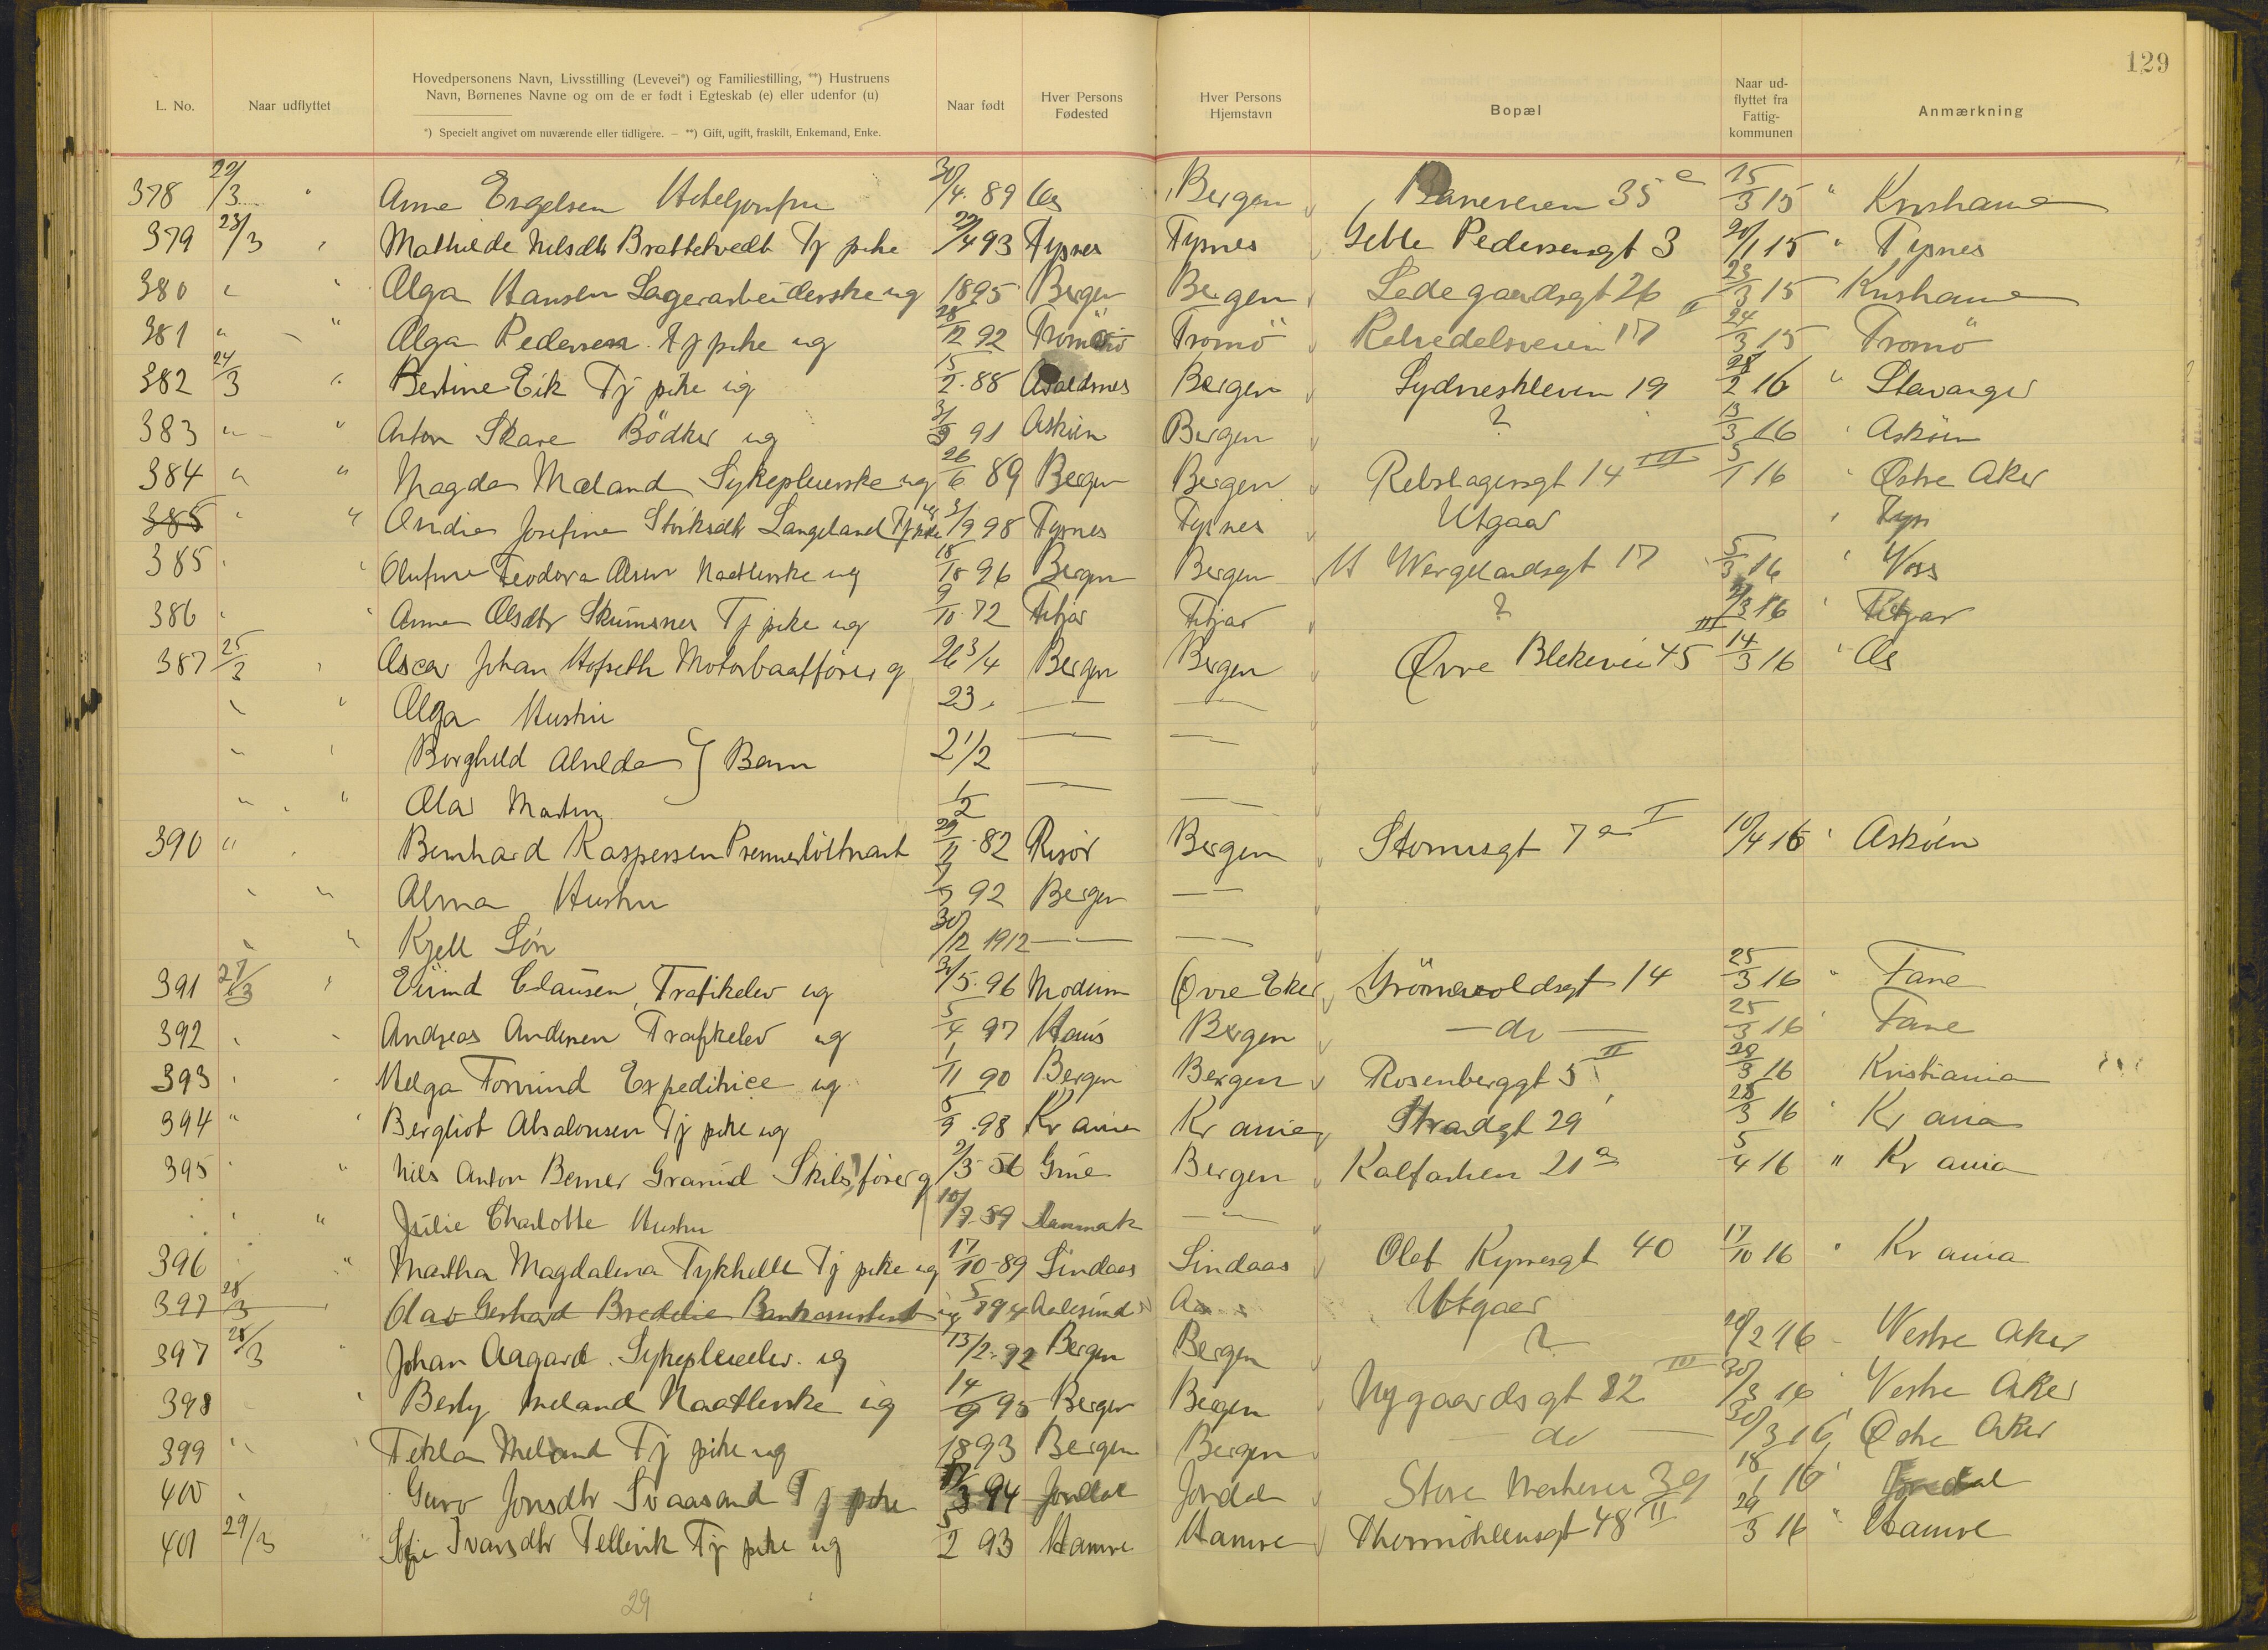 129
L. No. Naar udflyttet Hovedpersonens Navn, Livsstilling (Levevei*) og Familiestilling, **) Hustruens Navn, Børnenes Navne og om de er født i Egteskab (e) eller udenfor (u) Naar født Hver Persons Fødested Hver Persons Hjemstavn Bopæl Naar ud-flyttet fra Fattig-kommunen Anmærkning
*) Specielt angivet om nuværende eller tidligere. — **) Gift, ugift, fraskilt, Enkemand, Enke.
378 22/3 " Anna Engelsen Hoteljomfru 30/4. 89 Os Bergen 35 15/3 15 " Krishania
379 23/3 " Mathilde Nilsdtr Brattetvedt Tj pike 22/4 93 Tysnes Tysnes Geble Pedersensgt 3 20/1 15 " Tysnes
380 " " Olga Hansen Lagerarbeiderske ug 1895 Bergen Bergen Ladegaardsgt 26 23/3 15 Krishania
381 " " Olga Pedersen Tj pike ug 28/12 92 Tromö Tromö 17 24/3 15 Tromö
382 24/3 " Bertine Eik Tj pike ug 15/2. 88 Avaldsnes Bergen Sydneskleven 19 28/2 16 " Stavanger
383 " " Anton Skare Bödker ug 3/9 91 Asköen Bergen ? 13/3 16 " Asköen
384 " " Magda Mæland Sykepleierske ug 26/6 89 Bergen Bergen Rebslagergt 14 III 5/1 16 " Østre Aker
385 " " Andrea Josefine Langeland Tj pike ug 3/9 98 Tysnes Tysnes Utgaar " Tysn
385 " " Olufine Teodora Olsen Naatlerske ug 18 96 Bergen Bergen H Wergelandsgt 17 5/3 16 " Voss
386 " " Anna Olsdtr Skumsnes Tj pike ug 9/10. 72 Fitjar Fitjar ? 3 16 " Fitjar
387 25/3 " Oscar Johan Hofseth Motorbaatfører g 26 3/4 Bergen Bergen Øvre Blekevei 45 III 14/3 16 " Os
" " Olga Hustru 23 — —
" " Borghild Alvilda } Barn 2 1/2 — —
" " Olav Martin 1/2 — —
390 " " Bernhard Kaspersen Premierlöitnant 29/11. 82 Risör Bergen 7 a I 10/4 16 " Asköen
" " Alma Hustru 92 Bergen —
" " Kjell Sön 30/12 1912 — —
391 27/3 " Eivind Clausen Trafikelev ug 31/5. 96 Modum Øvre Eker Grönnevoldsgt 14 25/3 16 " Fane
392 " " Andreas Andersen Trafikelev ug 5/4 97 Haus Bergen — do — 25/3 16 " Fane
393 " " Helga Expeditrice ug 1/11 90 Bergen Bergen Rosenberggt 5 II 28/3 16 Kristiania
394 " " Bergliot Absalonsen Tj pike ug 5/9. 98 Kr ania Kr ania Strandgt 29 28/3 16 " Kr ania
395 " " Nils Anton Berner Granrud Skibsfører g 2/3 56 Grue Bergen Kalfarlien 21 a 5/4 16 " Kr ania
" " Julie Charlotte Hustru 10/7. 59 Danmark —
396 " " Martha Magdalena Tykhelle Tj pike ug 17/10-89 Lindaas Lindaas Olaf Kyrresgt 40 17/10 16 " Kr ania
397 28/3 " Olav Gerhard Bredelie Bankassistent ug 94 Aalesund Aa Utgaar
397 28/3 " Johan Aagaard Sykepleieelev ug 13/2. 92 Bergen Bergen ? 20/2 16 Vestre Aker
398 " " Berly Meland Naatlerske ug 14/9 95 Bergen Bergen Nygaardsgt 82 III 30/3 16 " Vestre Aker
399 " " Tekla Meland Tj pike ug 1893 Bergen Bergen — do — 30/3 16 " Østre Aker
400 " Guro Jonsdtr Svaasand Tj pike 3 94 Jondal Jondal Store 39 18/1 16 " Jondal
401 29/3 " Sofie Ivarsdtr Tellevik Tj pike ug 5/2 93 Hamre Hamre Thormöhlensgt 48 II 29/3 16 " Hamre
29